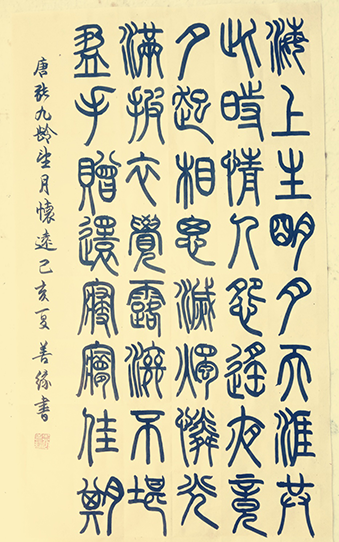 海上生明月天涯共
此時情人怨遙夜竟
夕起相思滅燭憐光
滿披衣覺露滋不堪
盈手贈還寢夢佳期
唐張九齡望月懷遠己亥夏善緣書